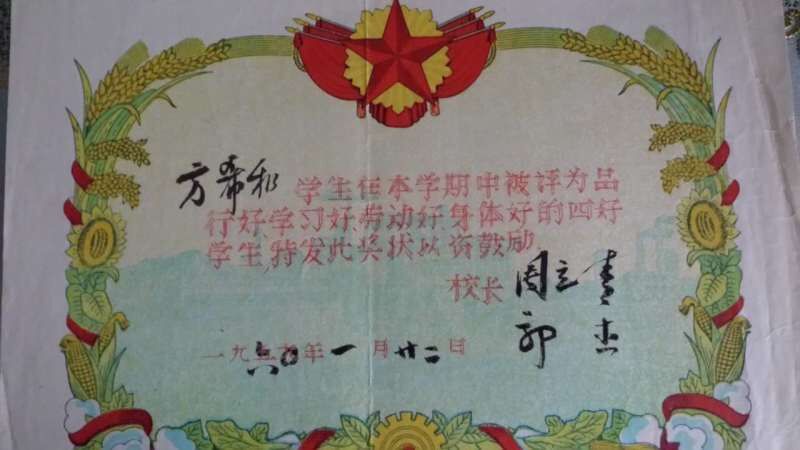 方希和 学生在本学期中被评为品
行好学习好劳动好身体好的四好
学生,特发此奖状以资鼓励
校长 周立青
郭杰
一九六〇年一月廿二日